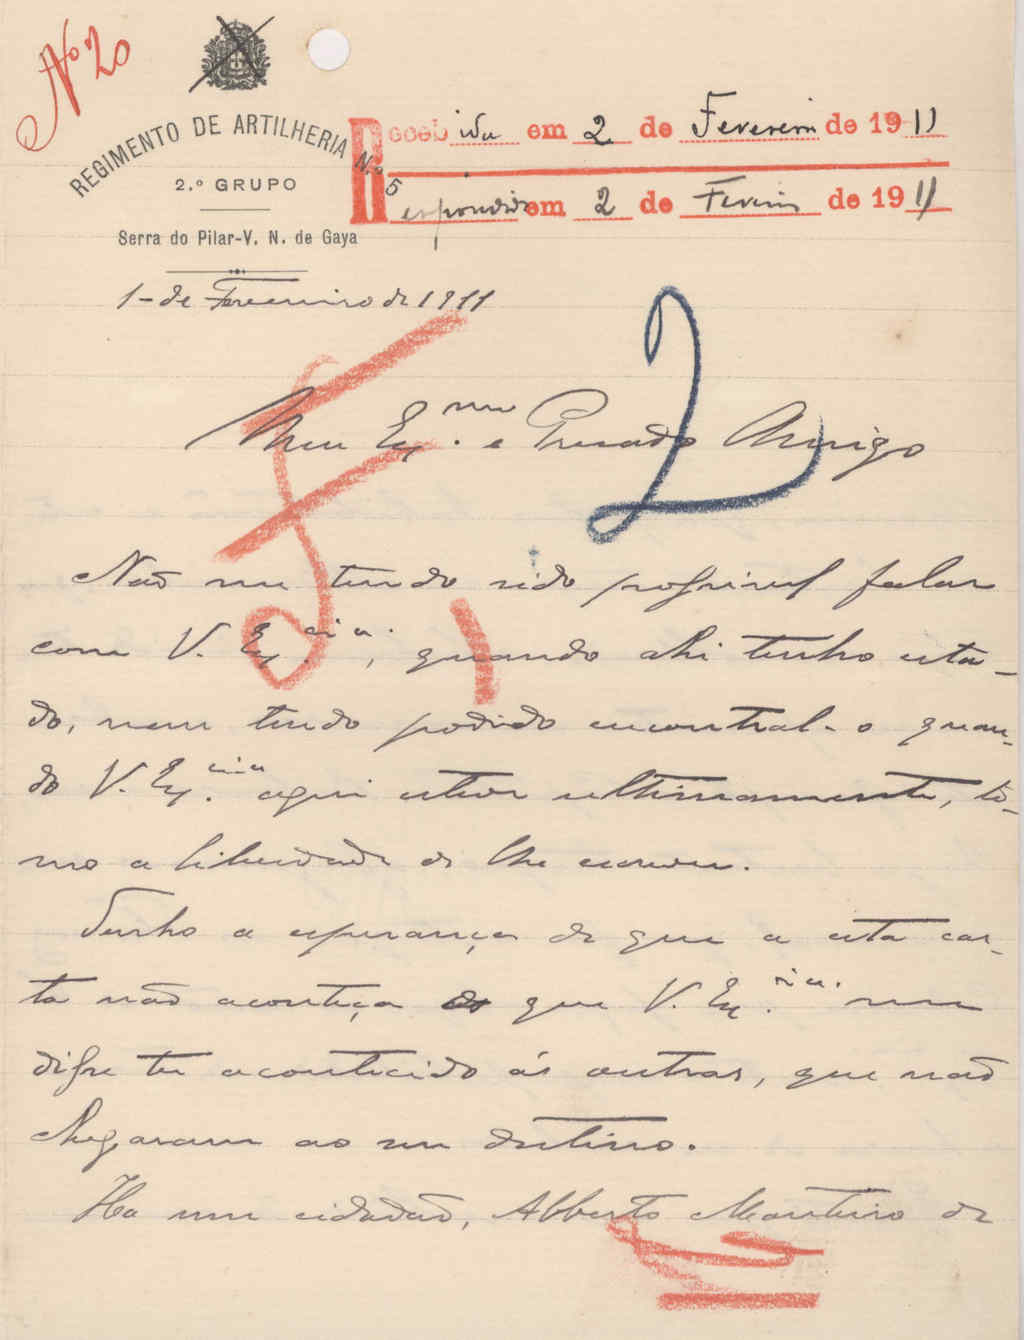 Nº 20
REGIMENTO DE ARTILHERIA N.º 5
2.º GRUPO
Serra do Pilar-V. N. de Gaya
Recebida em 2 de Fevereiro de 1911
Respondida em 2 de Fevereiro de 1911
1-de Fevereiro de 1911
2
Meu Ex.mo e Presado Amigo
Não me tendo sido possivel falar
com V. Ex.cia, quando ahi tenho esta-
do, nem tendo podido encontral-o quan-
do V. Ex.cia aqui esteve ultimamente, to-
mo a liberdade de lhe escrever.
Tenho a esperança de que a esta car-
ta não aconteça o que V. Ex.cia me
disse ter acontecido ás outras, que não
chegaram ao seu destino.
Ha um cidadão, Alberto Monteiro de